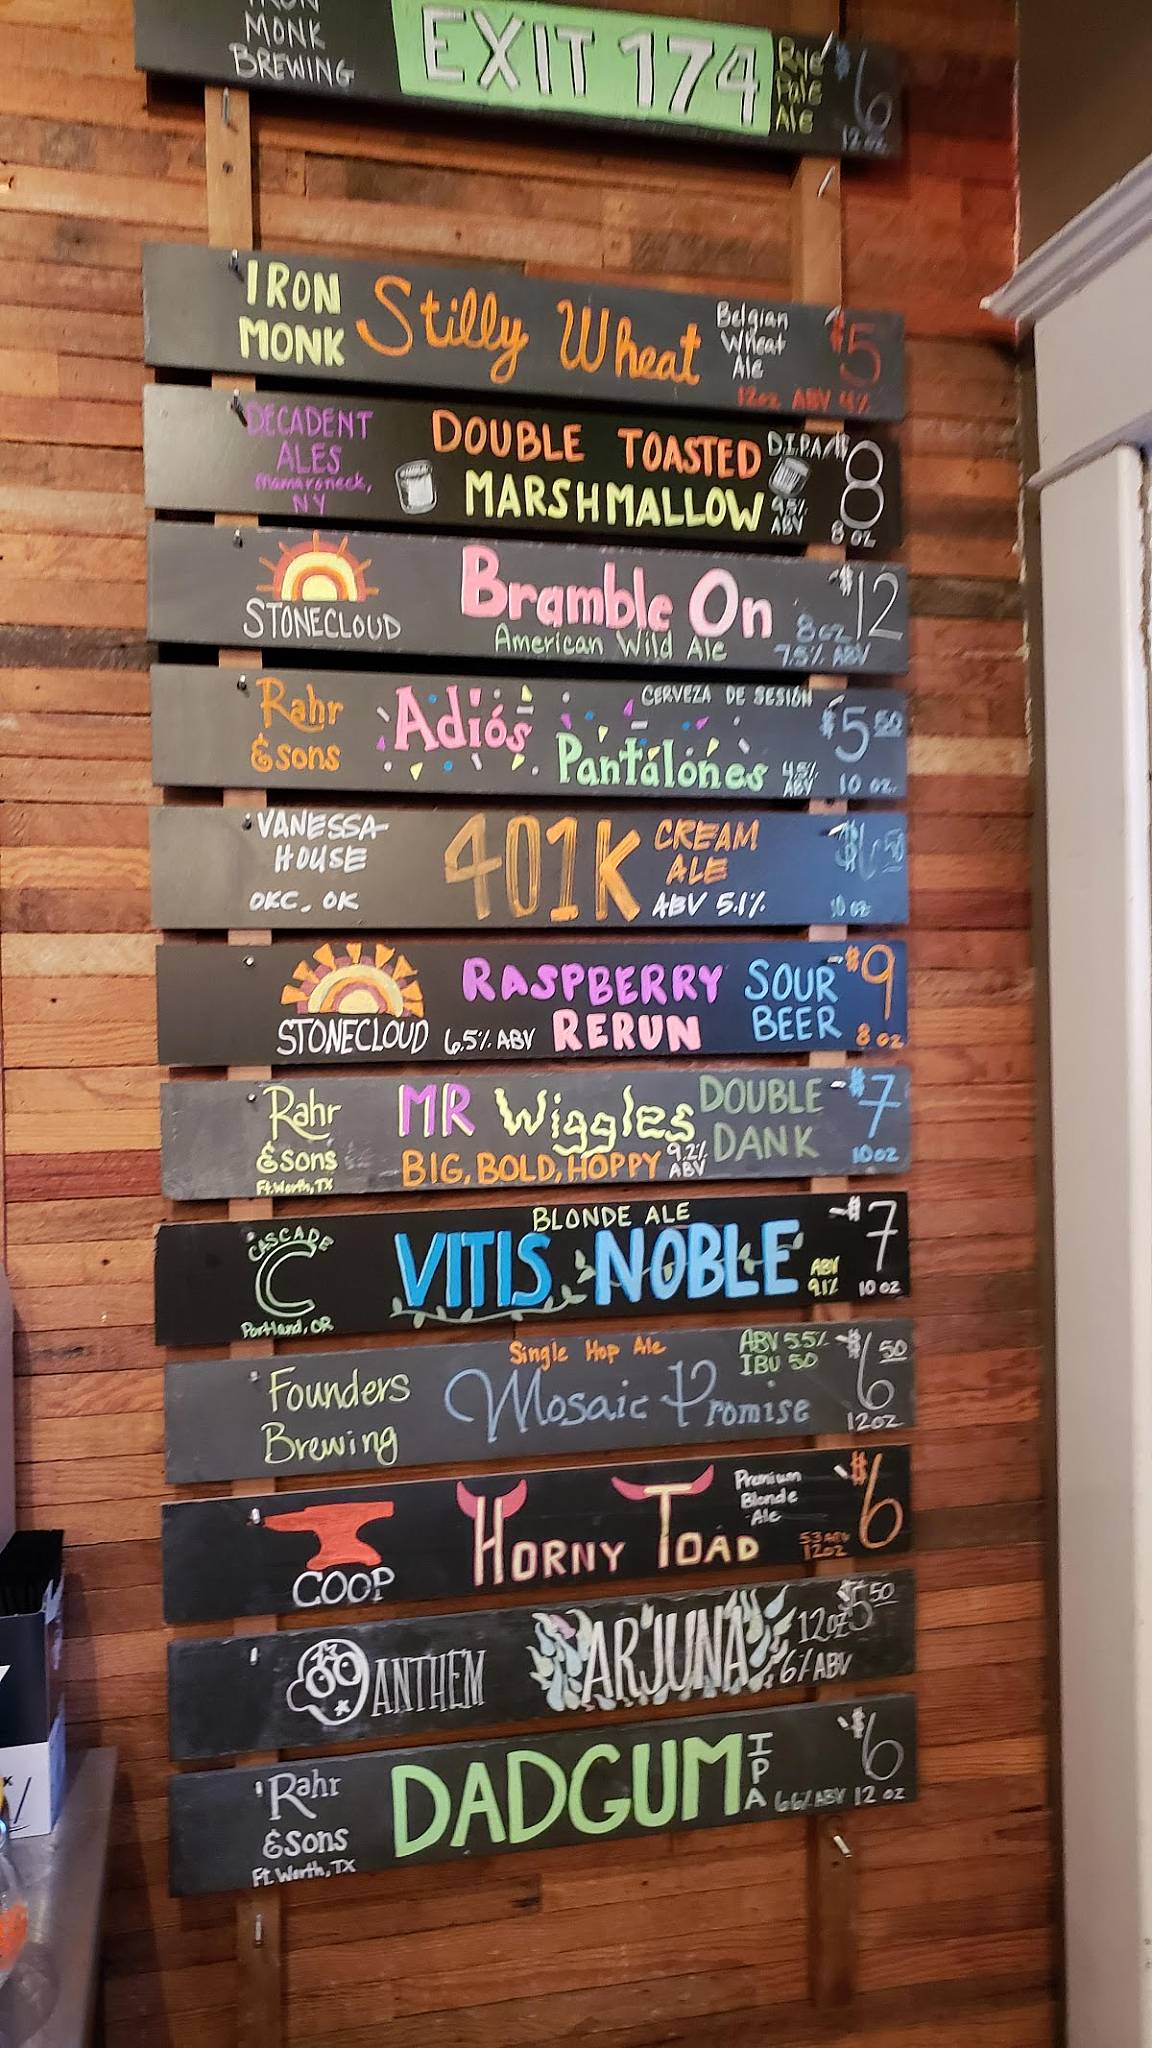 IRON
MONK
BREWING
EXIT 174
Rye
Pale
Ale
$6
12 oz
IRON
MONK
Stilly Wheat
Belgian
Wheat
Ale
$5
12oz ABV 4%
DECADENT
ALES
Mamaroneck,
NY
DOUBLE TOASTED
MARSHMALLOW
D.I.P.A.
9.5%
ABV
$8
8 oz
STONECLOUD
Bramble On
American Wild Ale
$12
8 oz
7.5% ABV
Rahr
&sons
CERVEZA DE SESIÓN
Adiós
Pantalones
4.5%
ABV
$5 50
10 oz.
VANESSA
HOUSE
OKC, OK
401K
CREAM
ALE
ABV 5.1%
$6 50
10 oz
STONECLOUD
6.5% ABV
RASPBERRY
RERUN
SOUR
BEER
$9
8 oz
Rahr
&sons
Ft. Worth, TX
MR Wiggles
BIG, BOLD, HOPPY
9.2%
ABV
DOUBLE
DANK
$7
10oz
CASCADE
C
Portland, OR
BLONDE ALE
VITIS NOBLE
ABV
9.1%
$7
10 oz
Founders
Brewing
Single Hop Ale
Mosaic Promise
ABV 5.5%
IBU 50
$6 50
12oz
COOP
HORNY TOAD
Premium
Blonde
Ale
5.3 ABV
12oz
$6
ANTHEM
ARJUNA
12oz
$5 50
6% ABV
Rahr
&sons
Ft. Worth, TX
DADGUM
IPA
6.6% ABV
$6
12 oz